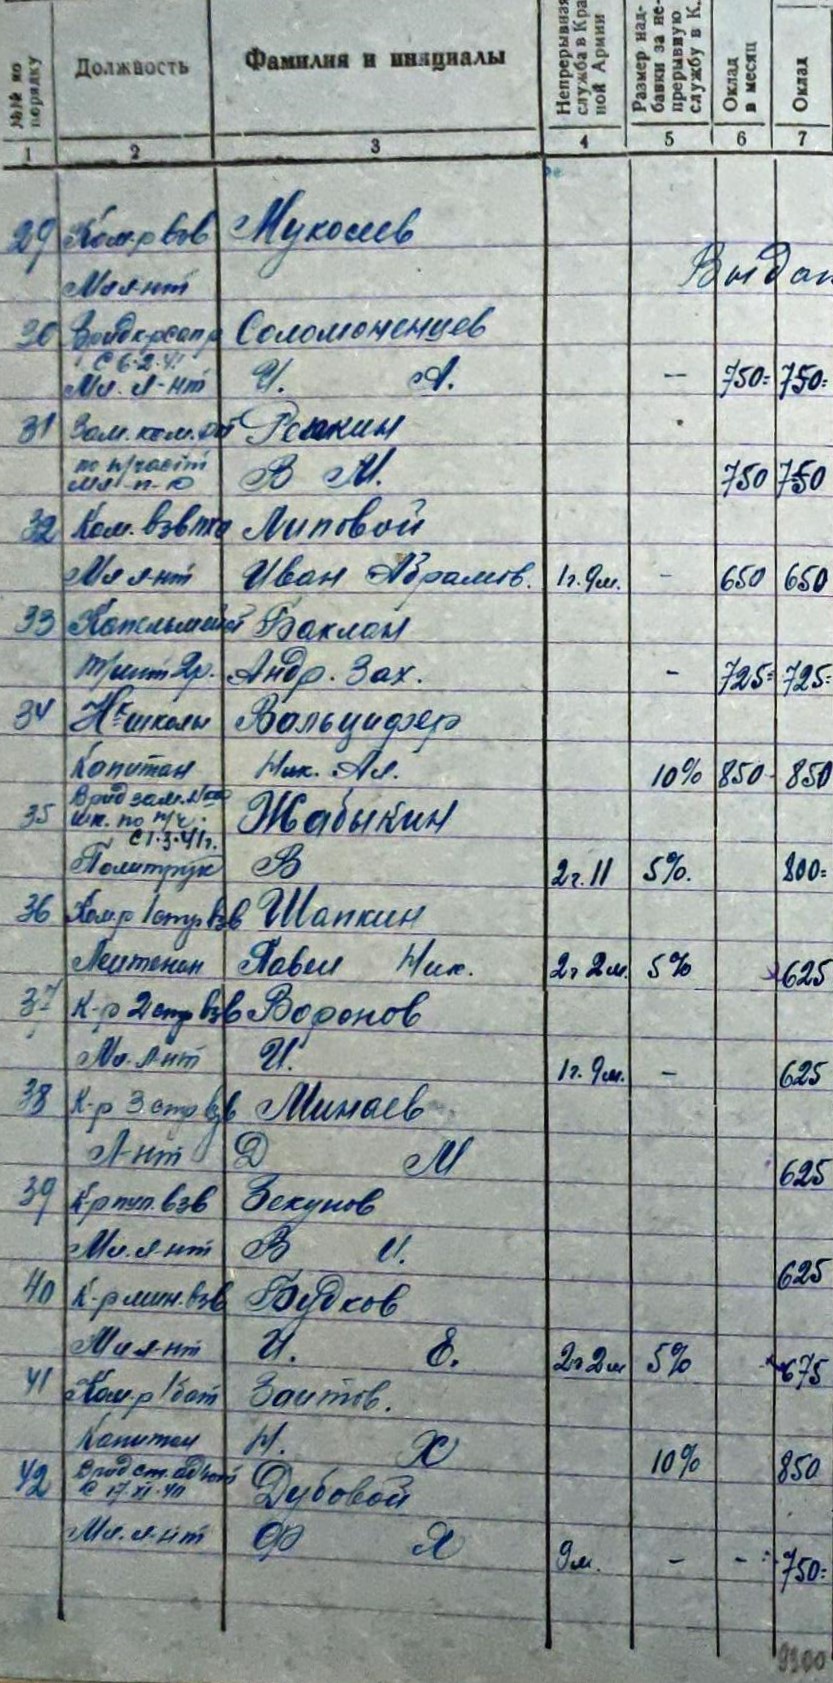 №№ по порядку
Должность
Фамилия и инициалы
Непрерывная служба в Кра ной Армии
Размер над- бавки за не- прерывную службу в К.
Оклад в месяц
Оклад
1 2 3 4 5 6 7
29 Ком-р взв Мукосеев
Мл л-нт Выдан
30 Соломоненцев
с 6.2.41
Мл. л-нт И. А. – 750= 750=
31 Зам. ком. Репкин
по п/части
В М. 750 750
32 Ком. взв Липовой
Мл л-нт Иван Абрамов. 1г. 9м. – 650 650
33 Баклан
Андр. Зах. – 725= 725=
34 Нк школы Вальцифер
Капитан Ник. Ал. 10% 850- 850
35 Врид зам. Нка
шк. по п/ч. Жабыкин
с 1.3.41г.
Политрук В 2г. 11 5%. 800=
36 Ком-р 1 стр взв Шапкин
Лейтенан Павел Ник. 2г 2м. 5% 625
37 К-р 2 стр взв Воронов
Мл. л-нт И. 1г. 9м. – 625
38 К-р 3 стр взв Минаев
Л-нт Д М 625
39 К-р пул. взв Зекунов
Мл. л-нт В И. 625
40 К-р мин. взв Будков
Мл л-нт И. Е. 2г 2м 5% 675
41 Ком-р 1 бат Заитов.
Капитан Н. Х 10% 850
42 Врид ст. адъют
с 17.XI.40 Дубовой
Мл. л-нт Ф Я 9м. – – 750=
9300